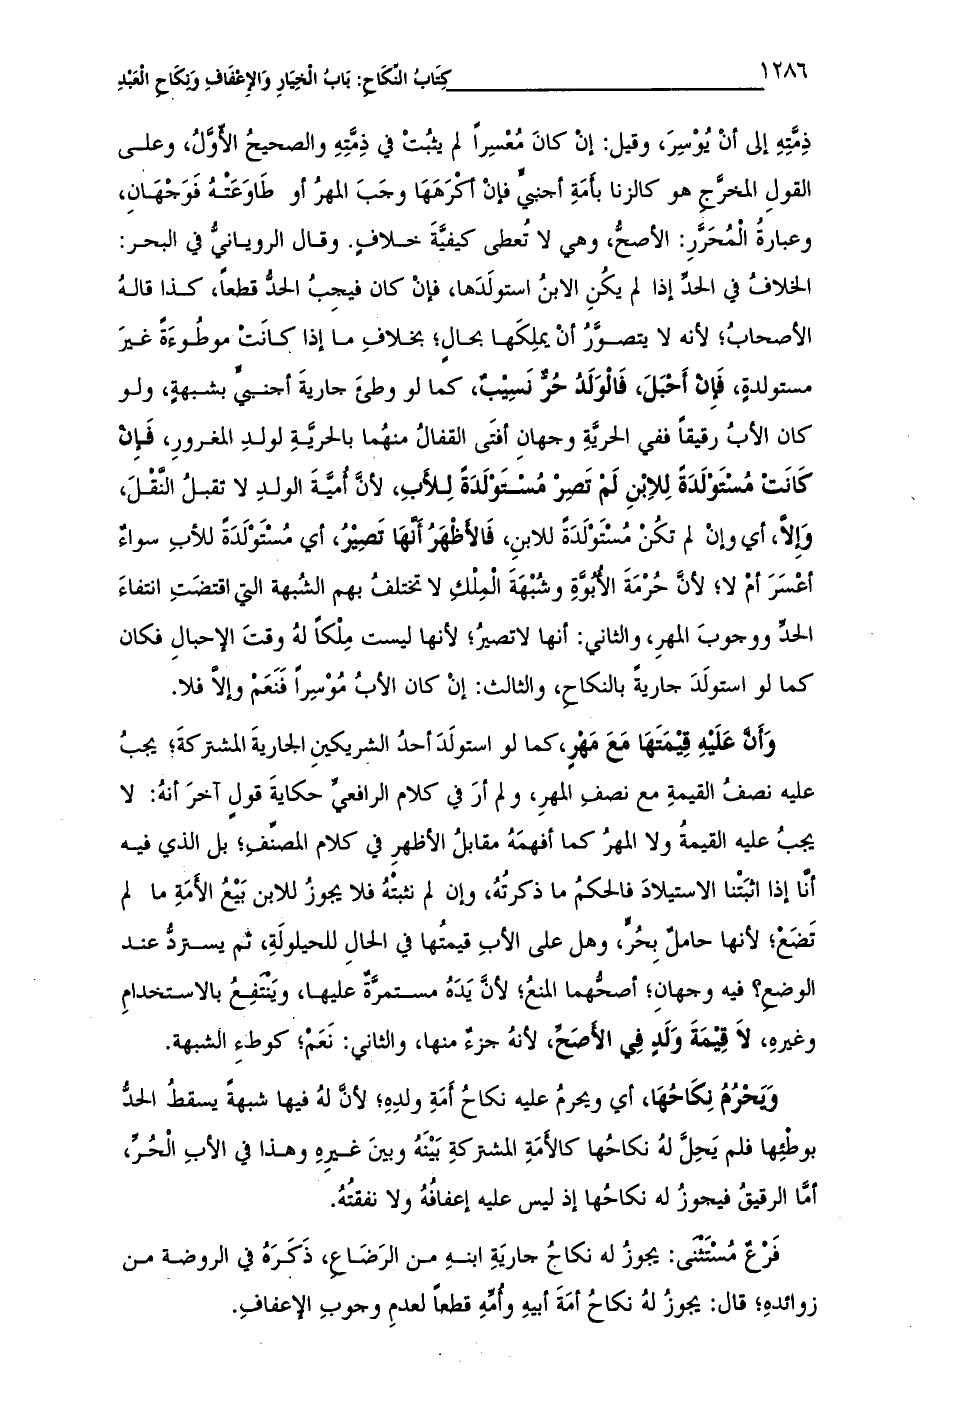 ١٢٨٦
كِتَابُ النِّكَاحِ: بَابُ الْخِيَارِ وَالإِعْفَافِ وَنِكَاحِ الْعَبْدِ
ذِمَّتِهِ إلى أنْ يُوْسِرَ، وقيل: إنْ كانَ مُعْسِراً لم يثبُتْ في ذِمَّتِهِ والصحيحُ الأَوَّلُ، وعلى
القولِ المخرَّجِ هو كالزنا بأَمَةِ أجنبيٍّ فإنْ أكْرَهَهَا وجَبَ المهرُ أو طَاوَعَتْهُ فَوَجْهَانِ،
وعبارةُ الْمُحَرَّرِ: الأصحُّ، وهي لا تُعطى كيفيَّةَ خلافٍ. وقال الرويانيُّ في البحر:
الخلافُ في الحدِّ إذا لم يكُنِ الابنُ استولَدَها، فإنْ كان فيجبُ الحدُّ قطعاً، كذا قالهُ
الأصحابُ؛ لأنه لا يتصوَّرُ أنْ يملِكَها بحالٍ؛ بخلافِ ما إذا كانَتْ موطُوءَةً غيرَ
مستولدةٍ، فَإِنْ أَحْبَلَ، فَالْوَلَدُ حُرٌّ نَسِيْبٌ، كما لو وطئَ جاريةَ أجنبيٍّ بشبهةٍ، ولو
كان الأبُ رقيقاً ففي الحريَّةِ وجهانِ أفتَى القفالُ منهُما بالحريَّةِ لولدِ المغرورِ، فَإِنْ
كَانَتْ مُسْتَوْلَدَةً لِلإِبْنِ لَمْ تَصِرْ مُسْتَوْلَدَةً لِلأَبِ، لأنَّ أُميَّةَ الولدِ لا تقبلُ النَّقْلَ،
وَإِلاَّ، أي وإنْ لم تكُنْ مُسْتَوْلَدَةً للابنِ، فَالأَظْهَرُ أَنَّهَا تَصِيْرُ، أي مُسْتَوْلَدَةً للأبِ سواءٌ
أعْسَرَ أمْ لا؛ لأنَّ حُرْمَةَ الأُبُوَّةِ وشُبْهَةَ الْمِلْكِ لا تختلفُ بهم الشُبهة التي اقتضَتِ انتفاءَ
الحدِّ ووجوبَ المهرِ، والثاني: أنها لاتصيرُ؛ لأنها ليست مِلْكاً لهُ وقتَ الإحبالِ فكان
كما لو استولَدَ جاريةً بالنكاحِ، والثالث: إنْ كان الأبُ مُوْسِراً فَنَعَمْ وإلاَّ فلا.
وَأَنَّ عَلَيْهِ قِيْمَتَهَا مَعَ مَهْرٍ، كما لو استولَدَ أحدُ الشريكينِ الجاريةَ المشتركةَ؛ يجبُ
عليه نصفُ القيمةِ مع نصفِ المهرِ، ولم أرَ في كلام الرافعيِّ حكايةَ قولٍ آخرَ أنهُ: لا
يجبُ عليه القيمةُ ولا المهرُ كما أفهمَهُ مقابلُ الأظهرِ في كلام المصنِّفِ؛ بل الذي فيه
أنَّا إذا اثبَتْنا الاستيلادَ فالحكمُ ما ذكرتُهُ، وإن لم نثبتْهُ فلا يجوزُ للابن بَيْعُ الأَمَةِ ما لم
تَضَعْ؛ لأنها حاملٌ بحُرٍّ، وهل على الأبِ قيمتُها في الحالِ للحيلولَةِ، ثم يستردُّ عند
الوضعِ؟ فيه وجهانِ؛ أصحُّهما المنعُ؛ لأنَّ يَدَهُ مستمرَّةٌ عليها، ويَنْتَفِعُ بالاستخدامِ
وغيرِهِ، لاَ قِيْمَةَ وَلَدٍ فِي الأَصَحِّ، لأنهُ جزءٌ منها، والثاني: نَعَمْ؛ كوطءِ الشبهة.
وَيَحْرُمُ نِكَاحُهَا، أي ويحرمُ عليه نكاحُ أَمَةِ ولدِهِ؛ لأنَّ لهُ فيها شبهةً يسقطُ الحدُّ
بوطْئِها فلم يَحِلَّ لهُ نكاحُها كالأَمَةِ المشتركةِ بَيْنَهُ وبينَ غيرِهِ وهذا في الأبِ الْحُرِّ،
أمَّا الرقيقُ فيجوزُ له نكاحُها إذ ليس عليه إعفافُهُ ولا نفقتُهُ.
فَرْعٌ مُسْتَثْنَى: يجوزُ له نكاحُ جاريَةِ ابنهِ من الرَضَاعِ، ذَكَرَهُ في الروضة من
زوائدهِ؛ قال: يجوزُ لهُ نكاحُ أمَةَ أبيهِ وأُمِّهِ قطعاً لعدمِ وجوبِ الإعفافِ.